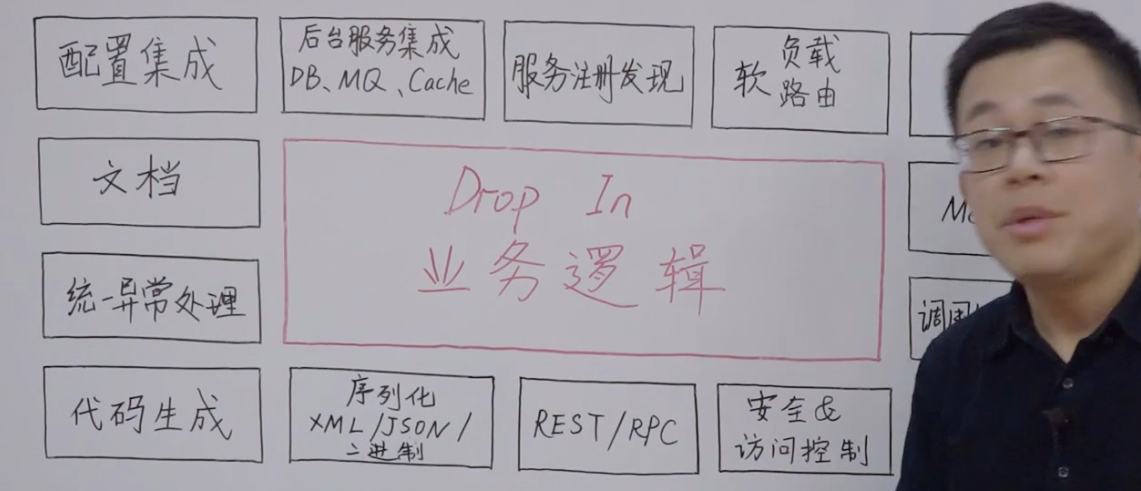 配置集成
后台服务集成
DB、MQ、Cache
服务注册发现
软
负载
路由
文档
Drop In
业务逻辑
统一异常处理
代码生成
序列化
XML/JSON/
二进制
REST/RPC
安全&
访问控制